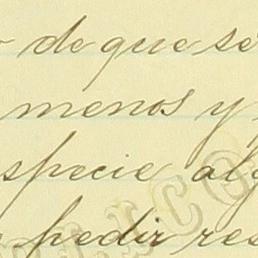 de que se
menos y
specie alg
pedir res